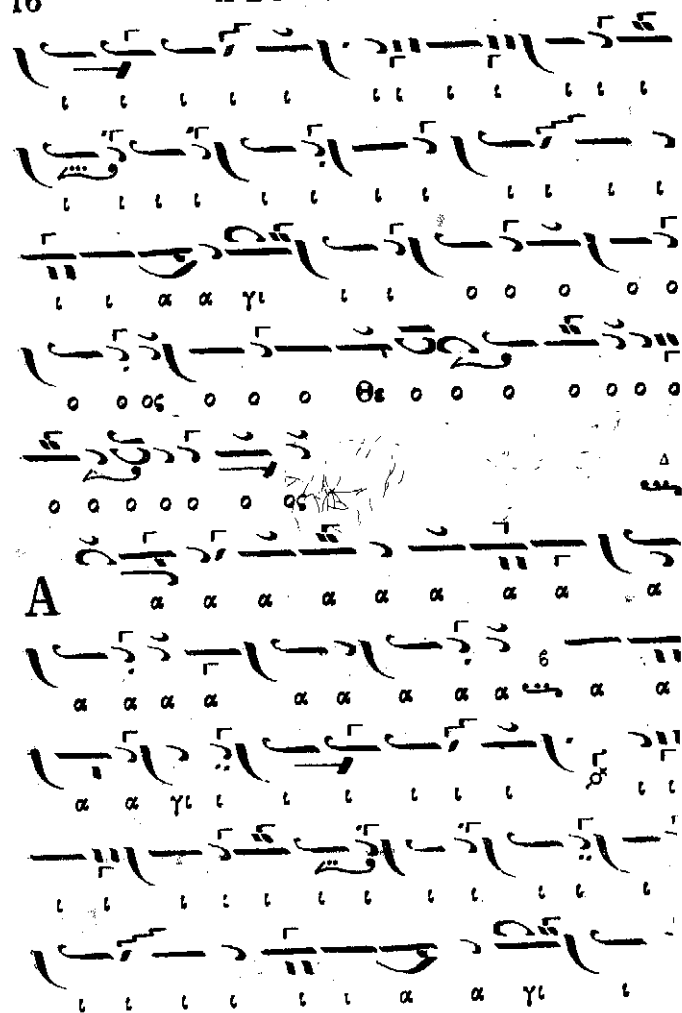 16
ι ι ι ι ι ι ι ι ι ι ι ι
ι ι ι ι ι ι ι ι ι ι ι ι
ι ι α α γι ι ι ο ο ο ο ο
ο ο ος ο ο ο Θε ο ο ο ο ο ο ο
ο ο ο ο ο ο ος Δ
Α α α α α α α α α α
α α α α α α α α α ϐ α α
α α γι ι ι ι ι ι ι ι ι
ι ι ι ι ι ι ι ι ι ι ι ι
ι ι ι ι ι ι α α γι ι